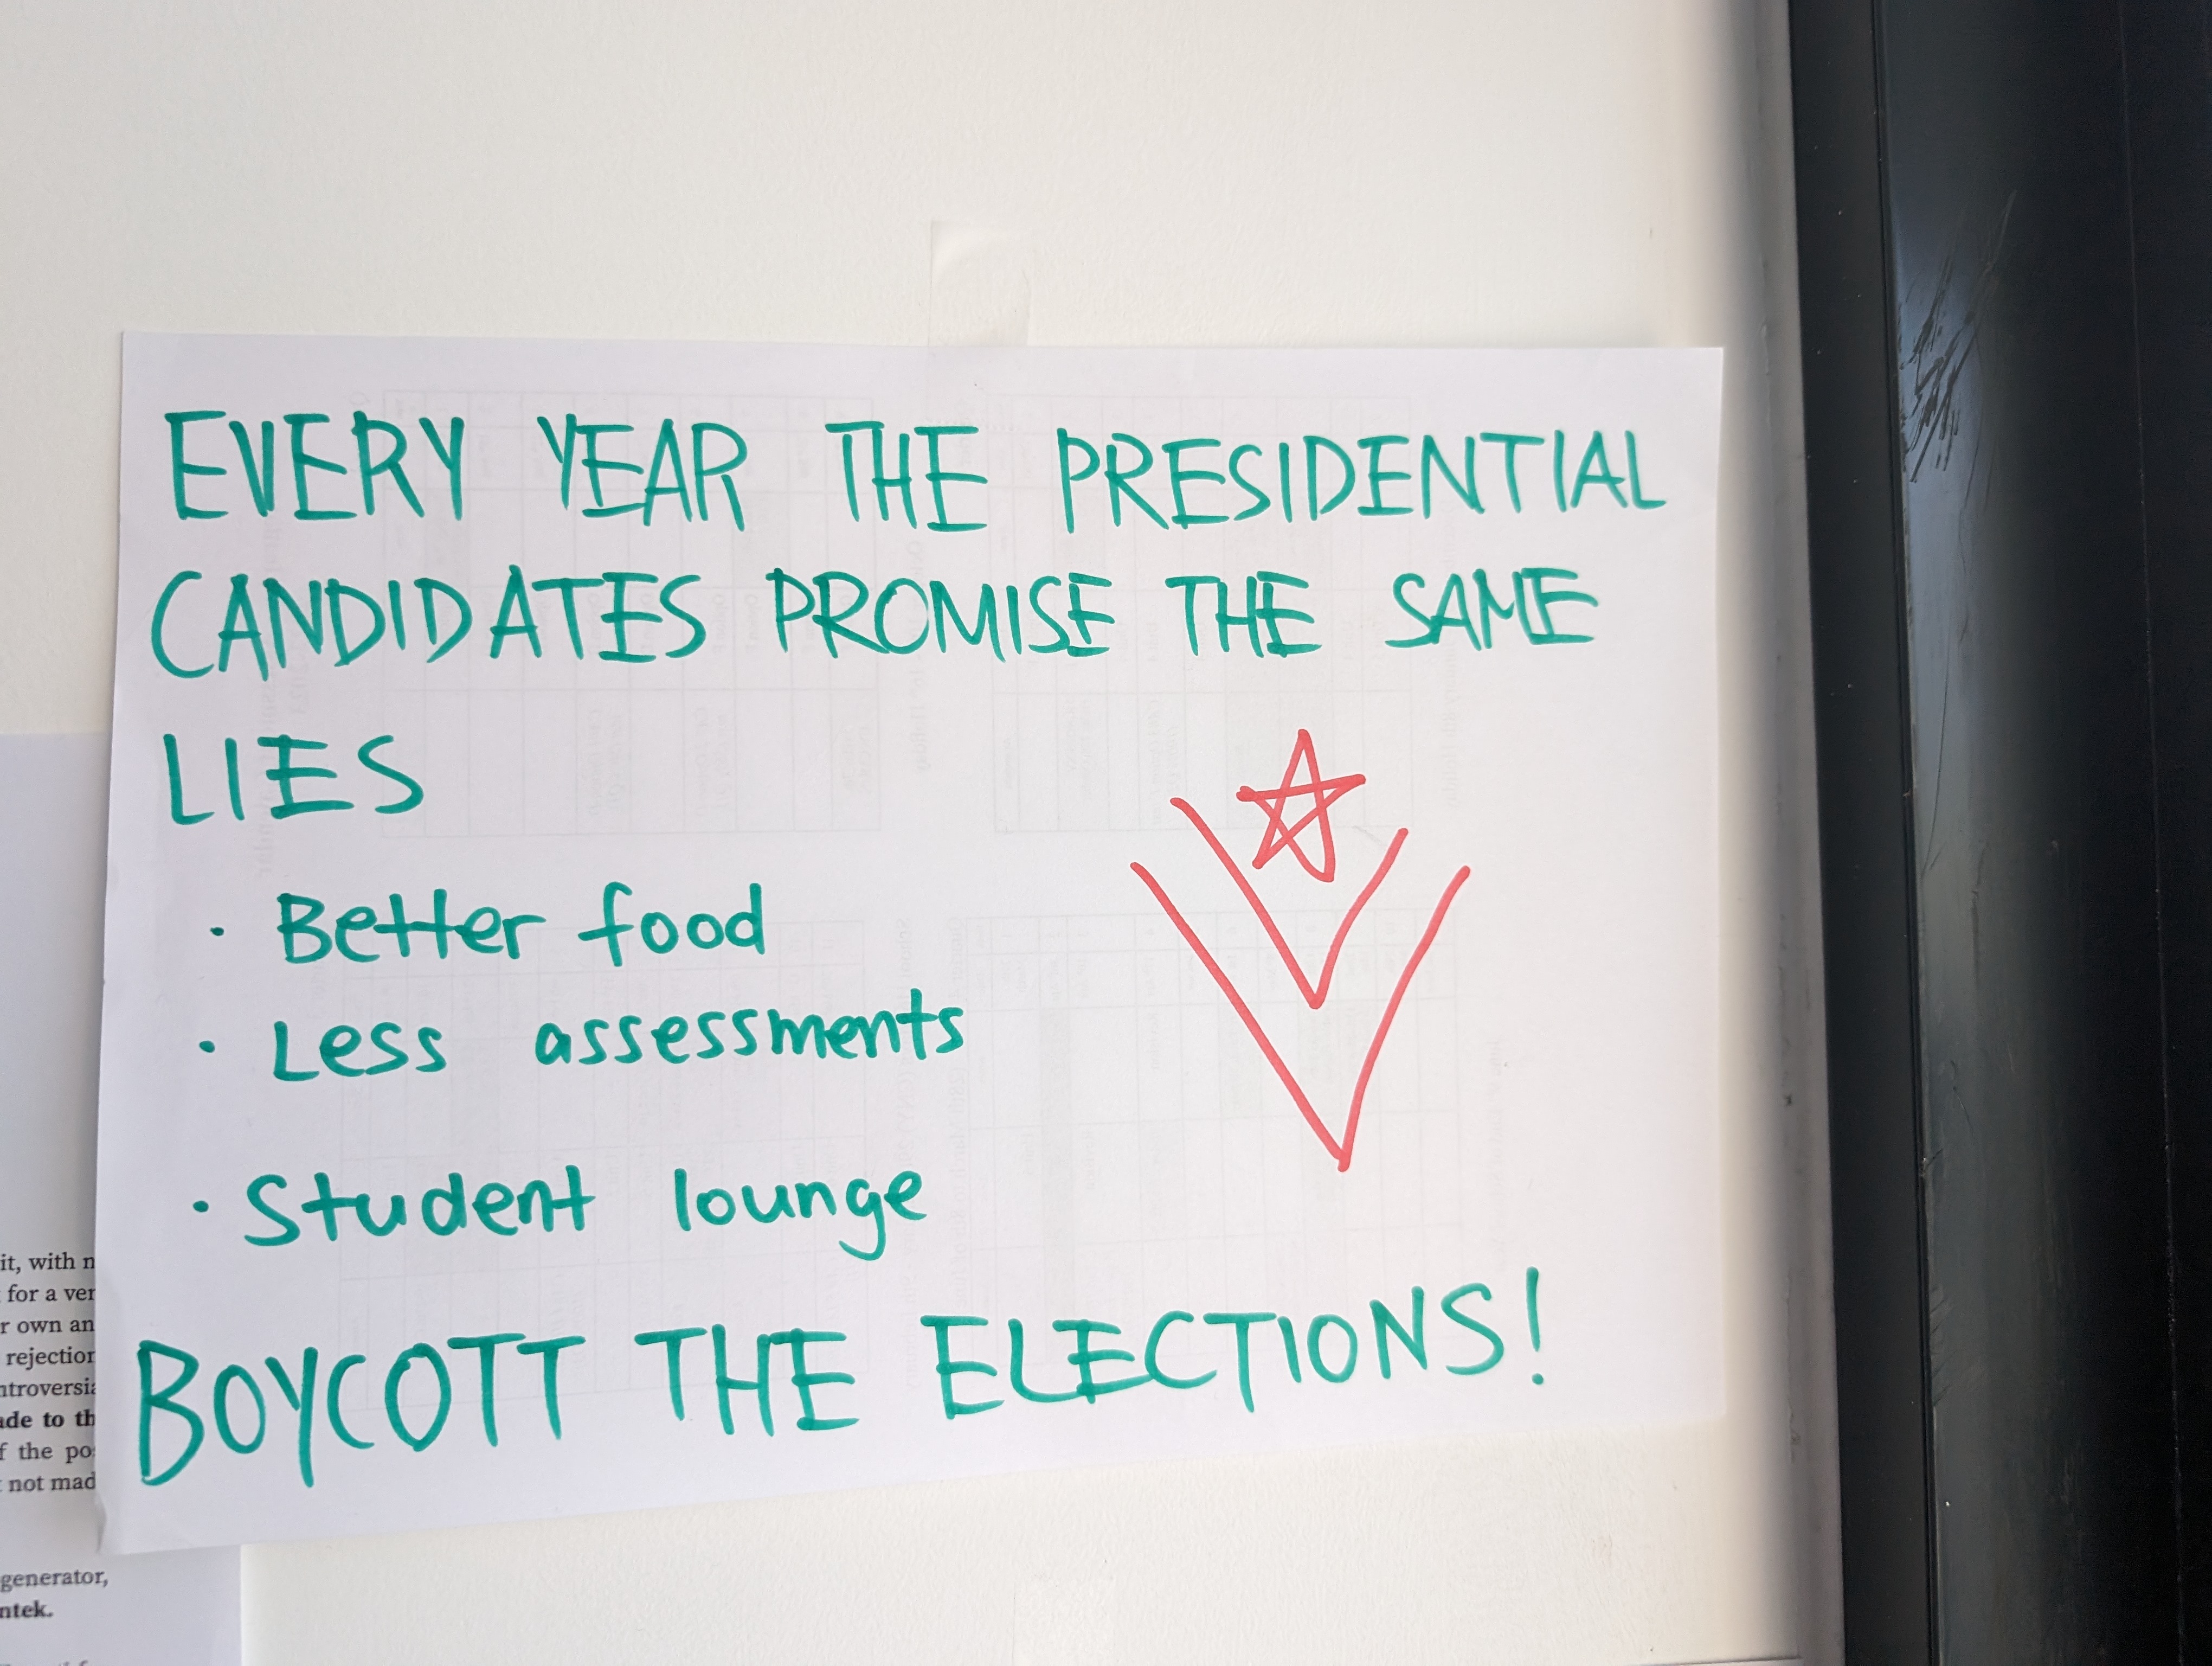 EVERY YEAR THE PRESIDENTIAL
CANDIDATES PROMISE THE SAME
LIES
· Better food
· Less assessments
· Student lounge
BOYCOTT THE ELECTIONS!
it, with n
for a ver
r own an
rejection
ntroversia
ade to th
f the po
not mad
generator,
ntek.